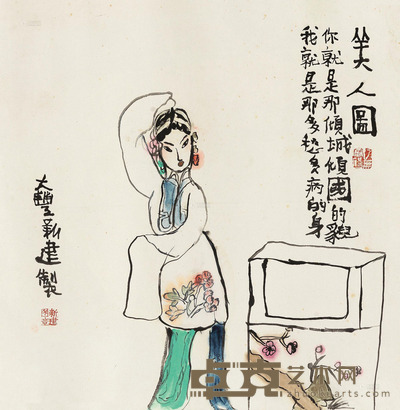 美人图
你就是那倾城倾国的貌
我就是那多愁多病的身
大豐新建製
新建